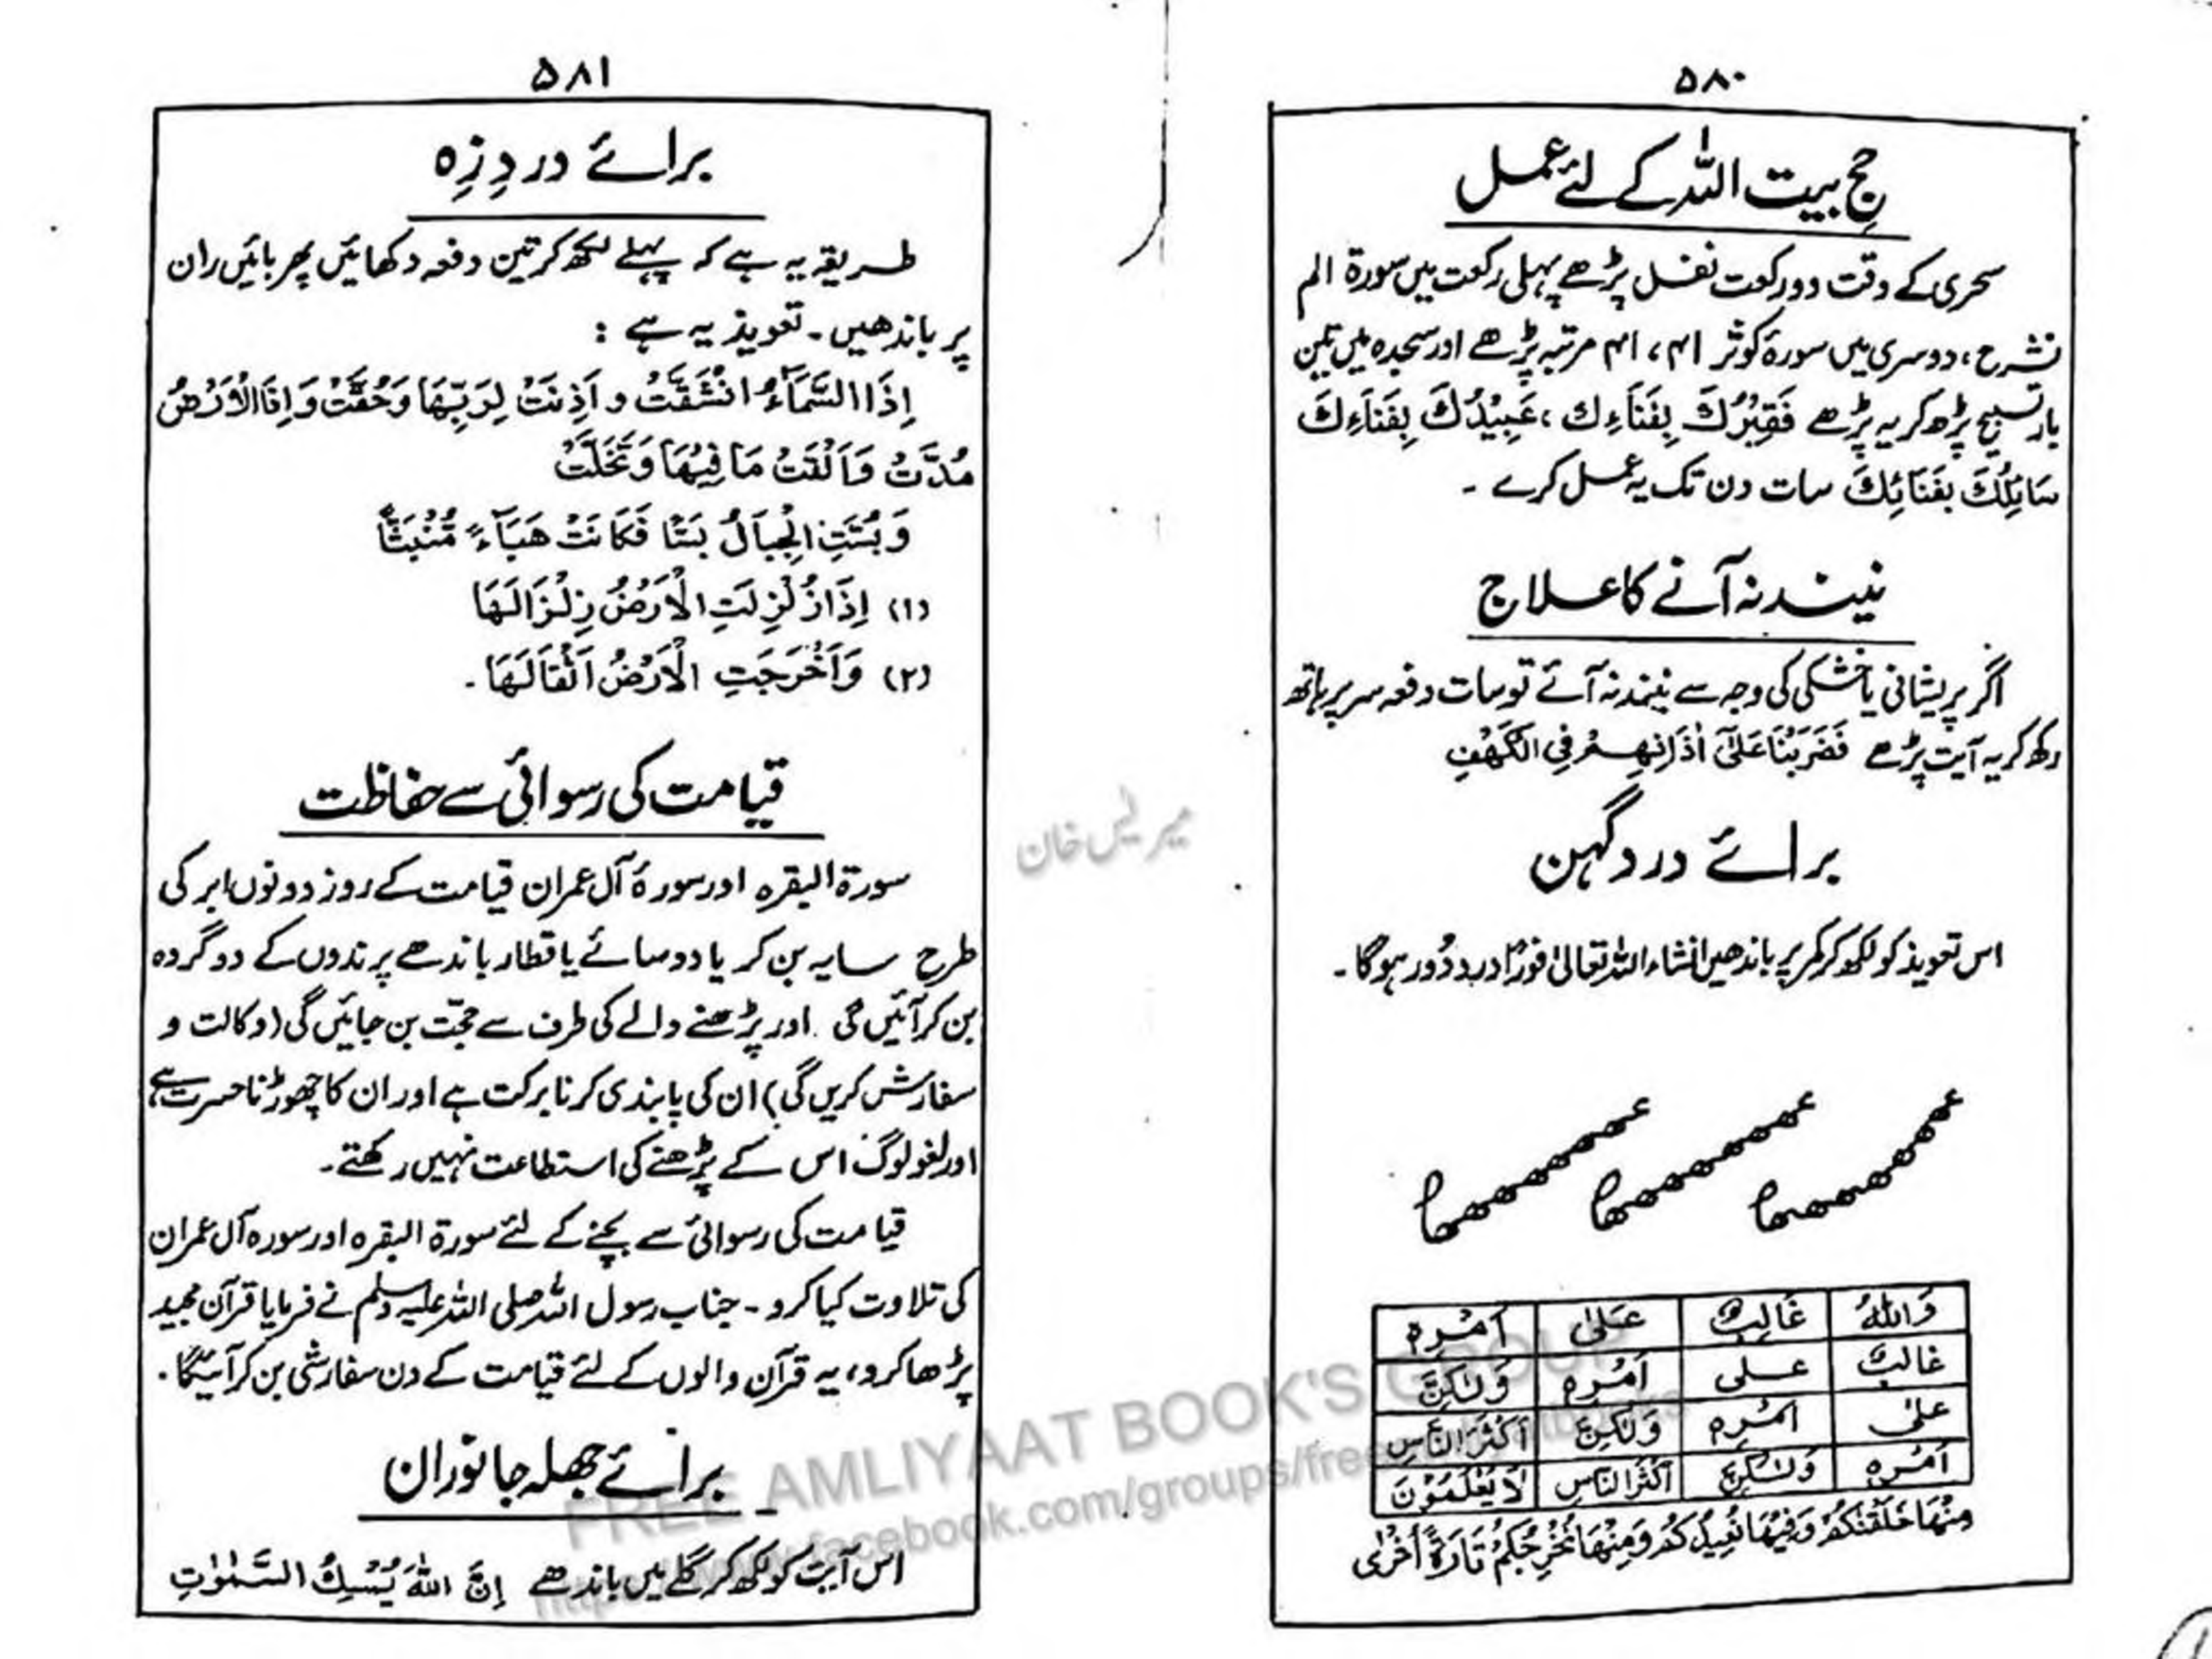 ۵۸۰
حج بیت اللہ کے لئے عمل
سحری کے وقت دو رکعت نفل پڑھے پہلی رکعت میں سورۃ الم
نشرح، دوسری میں سورۂ کوثر ۴۱، ۴۱ مرتبہ پڑھے اور سجدہ میں تین
بار تسبیح پڑھ کر یہ پڑھے فَقِيْرُكَ بِفَنَاءِكَ، عَبِيْدُكَ بِفَنَاءِكَ
سَائِلُكَ بِفَنَائِكَ سات دن تک یہ عمل کرے ۔
نیند نہ آنے کا علاج
اگر پریشانی یا خشکی کی وجہ سے نیند نہ آئے تو سات دفعہ سر پر ہاتھ
رکھ کر یہ آیت پڑھے فَضَرَبْنَا عَلَىٰٓ اٰذَانِهِمْ فِي الْكَهْفِ
برائے درد گہن
اس تعویذ کو لکھ کر کمر پر باندھیں انشاء اللہ تعالیٰ فوراً درد دُور ہوگا ۔
وَاللّٰهُ غَالِبٌ عَلٰى اَمْرِهٖ
غالبٌ على اَمْرِهٖ وَلٰكِنَّ
علىٰ اَمْرِهٖ وَلٰكِنَّ اَكْثَرَ النَّاسِ
اَمْرِهٖ وَلٰكِنَّ اَكْثَرَ النَّاسِ لَا يَعْلَمُوْنَ
مِنْهَا خَلَقْنٰكُمْ وَفِيْهَا نُعِيْدُكُمْ وَمِنْهَا نُخْرِجُكُمْ تَارَةً اُخْرٰى
۵۸۱
برائے دردِ زِہ
طریقہ یہ ہے کہ پہلے لکھ کر تین دفعہ دکھائیں پھر بائیں ران
پر باندھیں ۔ تعویذ یہ ہے :
اِذَا السَّمَآءُ انْشَقَّتْ وَاَذِنَتْ لِرَبِّهَا وَحُقَّتْ وَاِذَا الْاَرْضُ
مُدَّتْ وَاَلْقَتْ مَا فِيْهَا وَتَخَلَّتْ
وَبُسَّتِ الْجِبَالُ بَسًّا فَكَانَتْ هَبَآءً مُّنْبَثًّا
(۱) اِذَا زُلْزِلَتِ الْاَرْضُ زِلْزَالَهَا
(۲) وَاَخْرَجَتِ الْاَرْضُ اَثْقَالَهَا ۔
قیامت کی رسوائی سے حفاظت
سورۃ البقرہ اور سورۂ آل عمران قیامت کے روز دونوں ابر کی
طرح سایہ بن کر یا دو سائے یا قطار باندھے پرندوں کے دو گروہ
بن کر آئیں گی ۔ اور پڑھنے والے کی طرف سے حجّت بن جائیں گی (وکالت و
سفارش کریں گی) ان کی پابندی کرنا برکت ہے اور ان کا چھوڑنا حسرت ہے
اور لغو لوگ اس کے پڑھنے کی استطاعت نہیں رکھتے ۔
قیامت کی رسوائی سے بچنے کے لئے سورۃ البقرہ اور سورہ آل عمران
کی تلاوت کیا کرو ۔ جناب رسول اللہ صلی اللہ علیہ وسلم نے فرمایا قرآن مجید
پڑھا کرو، یہ قرآن والوں کے لئے قیامت کے دن سفارشی بن کر آئیگا ۔
برائے جھلہ جانوران
اس آیت کو لکھ کر گلے میں باندھے اِنَّ اللّٰهَ يُمْسِكُ السَّمٰوٰتِ
FREE AMLIYAAT BOOK'S GROUP